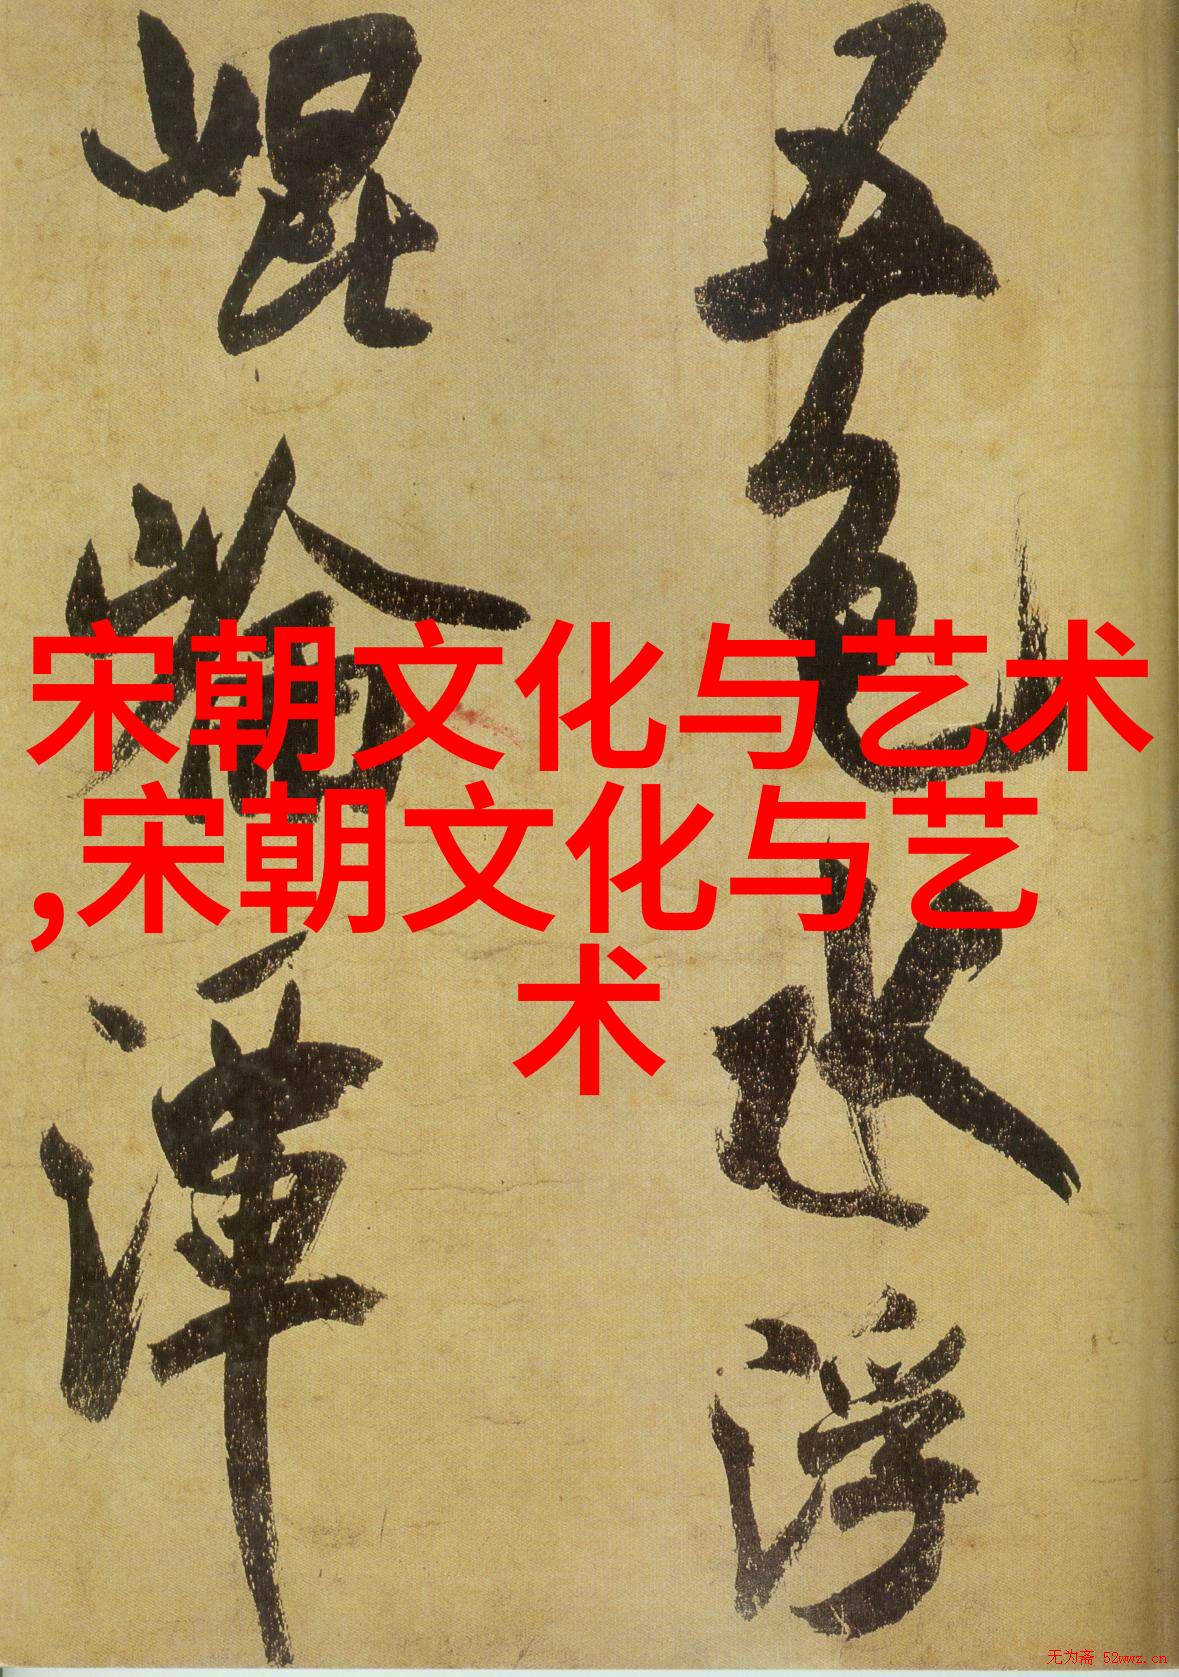 五色水浮
崐崘潭
宋朝文化与艺术
,宋朝文化与艺
术
无为斋 52wwz.cn